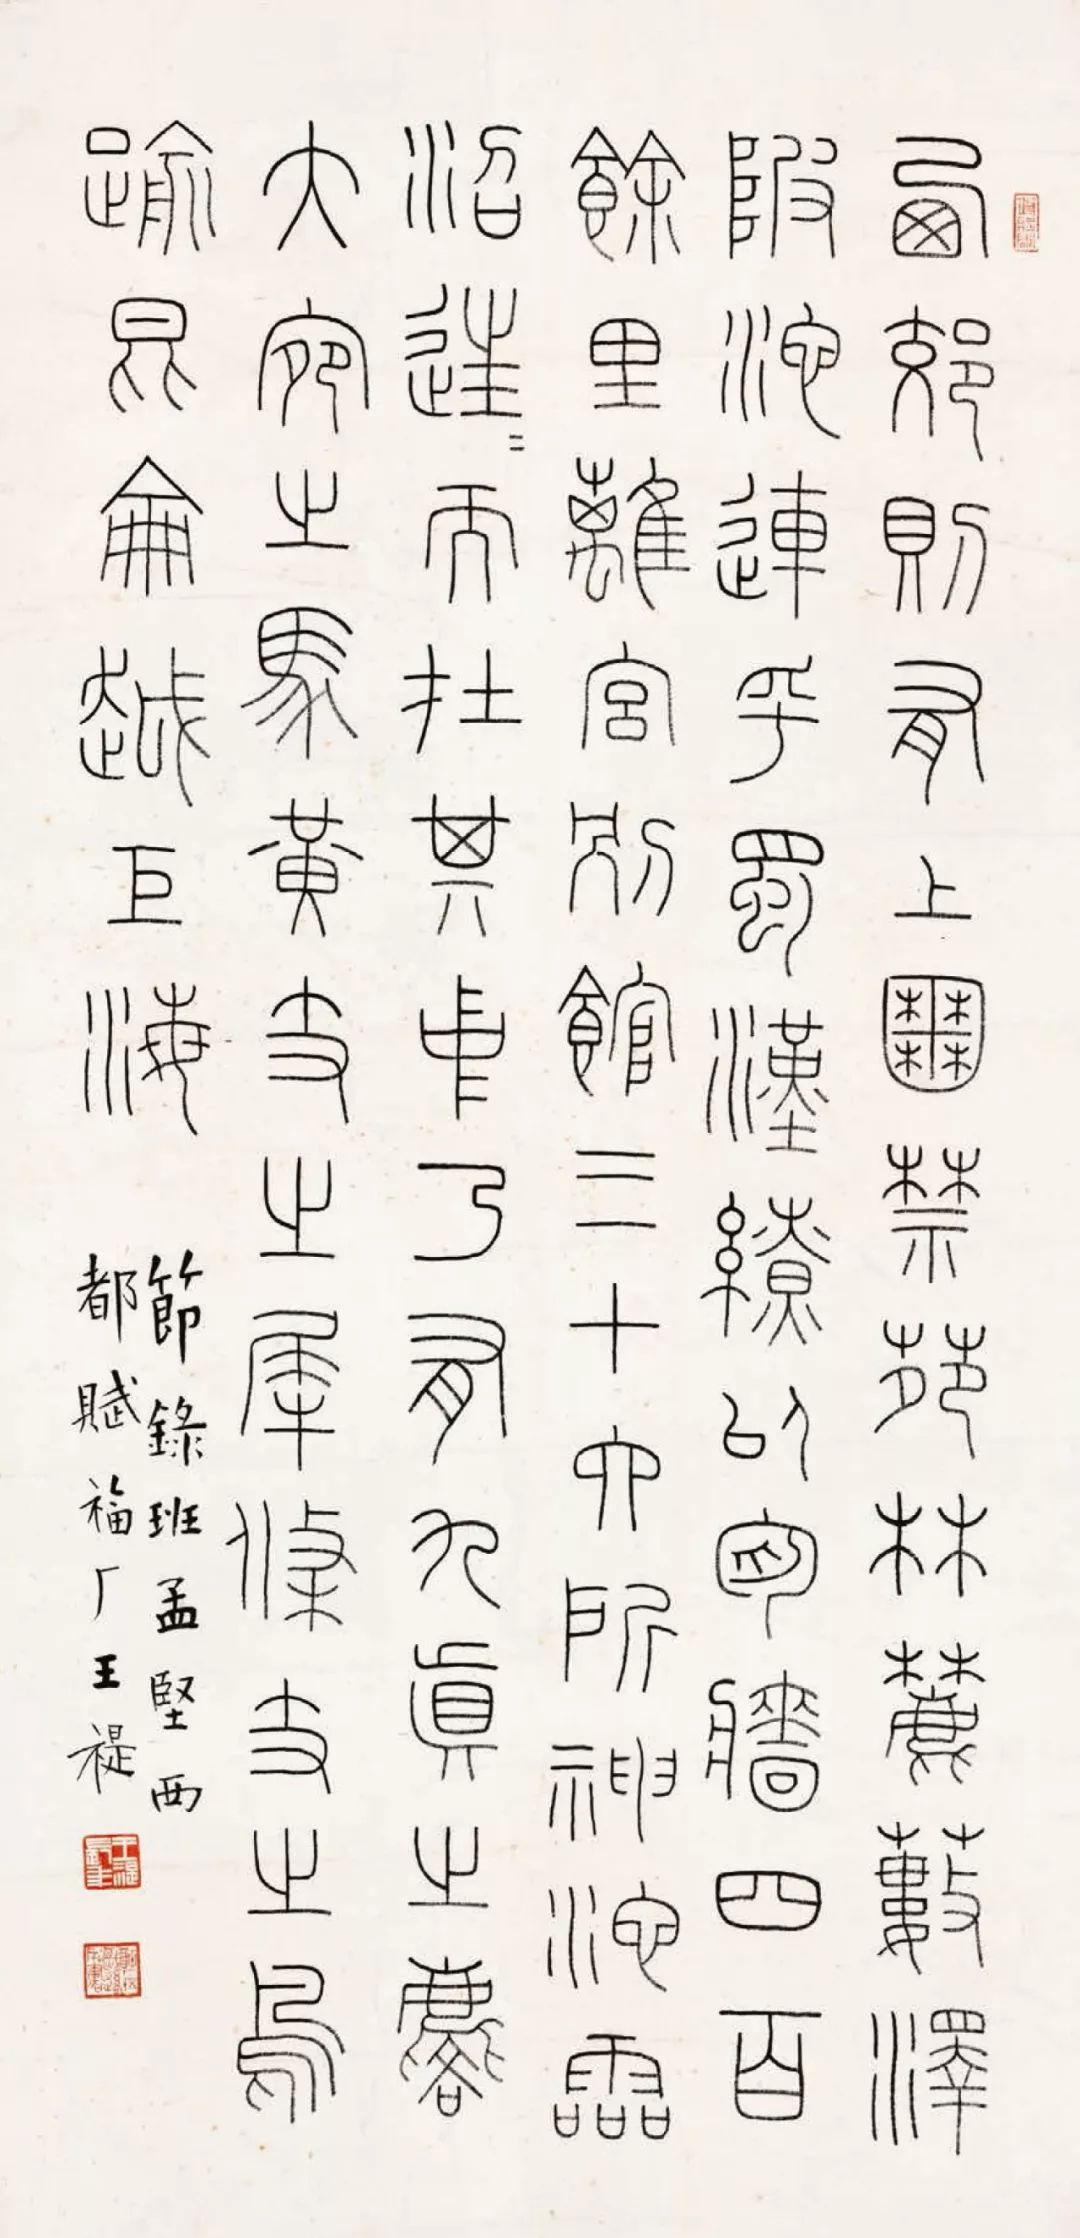 西郊則有上囿禁苑林麓藪澤
陂池連乎蜀漢繚以周牆四百
餘里離宮別館三十六所神池霝
沼往=而在其中乃有九真之麐
大宛之馬黃支之犀條支之鳥
踰昆侖越巨海
節錄班孟堅西
都賦福厂王禔